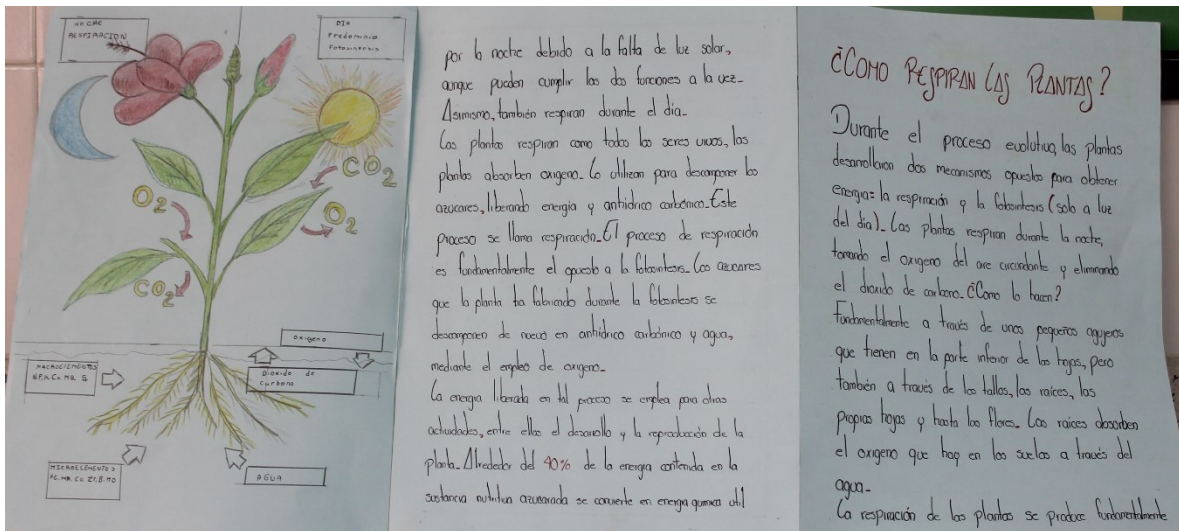 NOCHE
RESPIRACION
DIA
Predominio
Fotosintesis
CO2
O2
O2
CO2
OXIGENO
Dioxido de
Carbono
MACROELEMENTOS
N.P.K.Ca.MG. S
MICROELEMENTOS
AGUA
por la noche debido a la falta de luz solar,
aunque pueden cumplir las dos funciones a la vez-
Asimismo, también respiran durante el día-
Las plantas respiran como todos los seres vivos, las
plantas absorben oxigeno- Lo utilizan para descomponer los
azucares, liberando energía y anhídrico carbónico- Este
proceso se llama respiración- El proceso de respiración
es fundamentalmente el opuesto a la fotosintesis- Los azucares
que la planta ha fabricando durante la fotosintesis se
descomponen de nuevo en anhídrico carbónico y agua,
mediante el empleo de oxigeno-
La energía liberada en tal proceso se emplea para otras
actividades, entre ellas el desarrollo y la reproducción de la
planta- Alrededor del 40% de la energía contenida en la
sustancia nutritiva azucarada se convierte en energía quimica util
¿COMO RESPIRAN LAS PLANTAS?
Durante el proceso evolutivo, las plantas
desarrollaron dos mecanismos opuestos para obtener
energía: la respiración y la fotosintesis (solo a luz
del día)- Las plantas respiran durante la noche,
tomando el oxigeno del aire circundante y eliminando
el dioxido de carbono- ¿Como lo hacen?
Fundamentalmente a través de unos pequeños agujeros
que tienen en la parte inferior de las hojas, pero
también a través de los tallos, las raíces, las
propias hojas y hasta las flores- Las raíces absorben
el oxigeno que hay en los suelos a través del
agua-
La respiración de las plantas se produce fundamentalmente